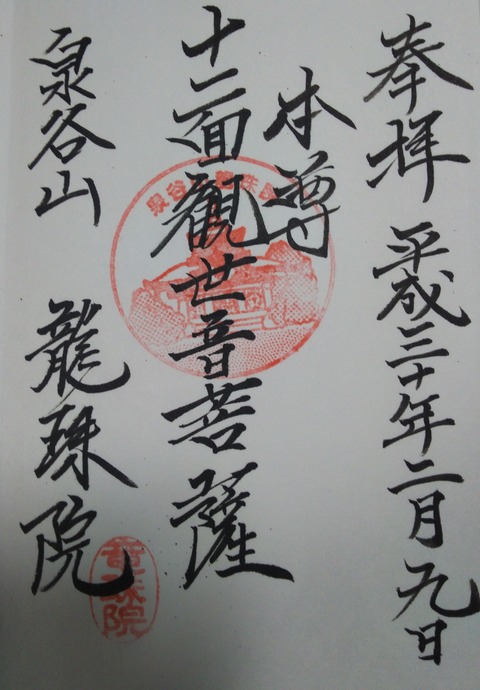 奉拝 平成三十年二月九日
本尊
十一面観世音菩薩
泉谷山 龍珠院
龍珠院